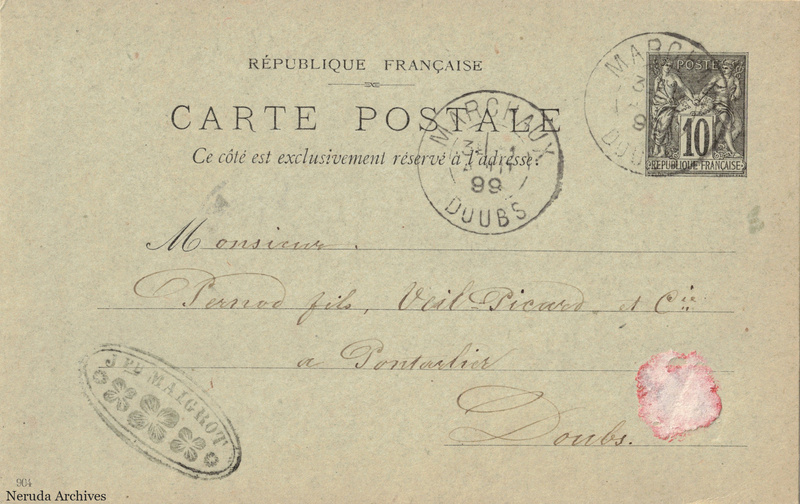 RÉPUBLIQUE FRANÇAISE
CARTE POSTALE
Ce côté est exclusivement réservé à l'adresse.
MARCHAUX
99
DOUBS
POSTES
10
REPUBLIQUE FRANÇAISE
Monsieur
Pernod fils, Veil-Picard et Cie
a Pontarlier
Doubs.
Jph MAIGROT
904
Neruda Archives